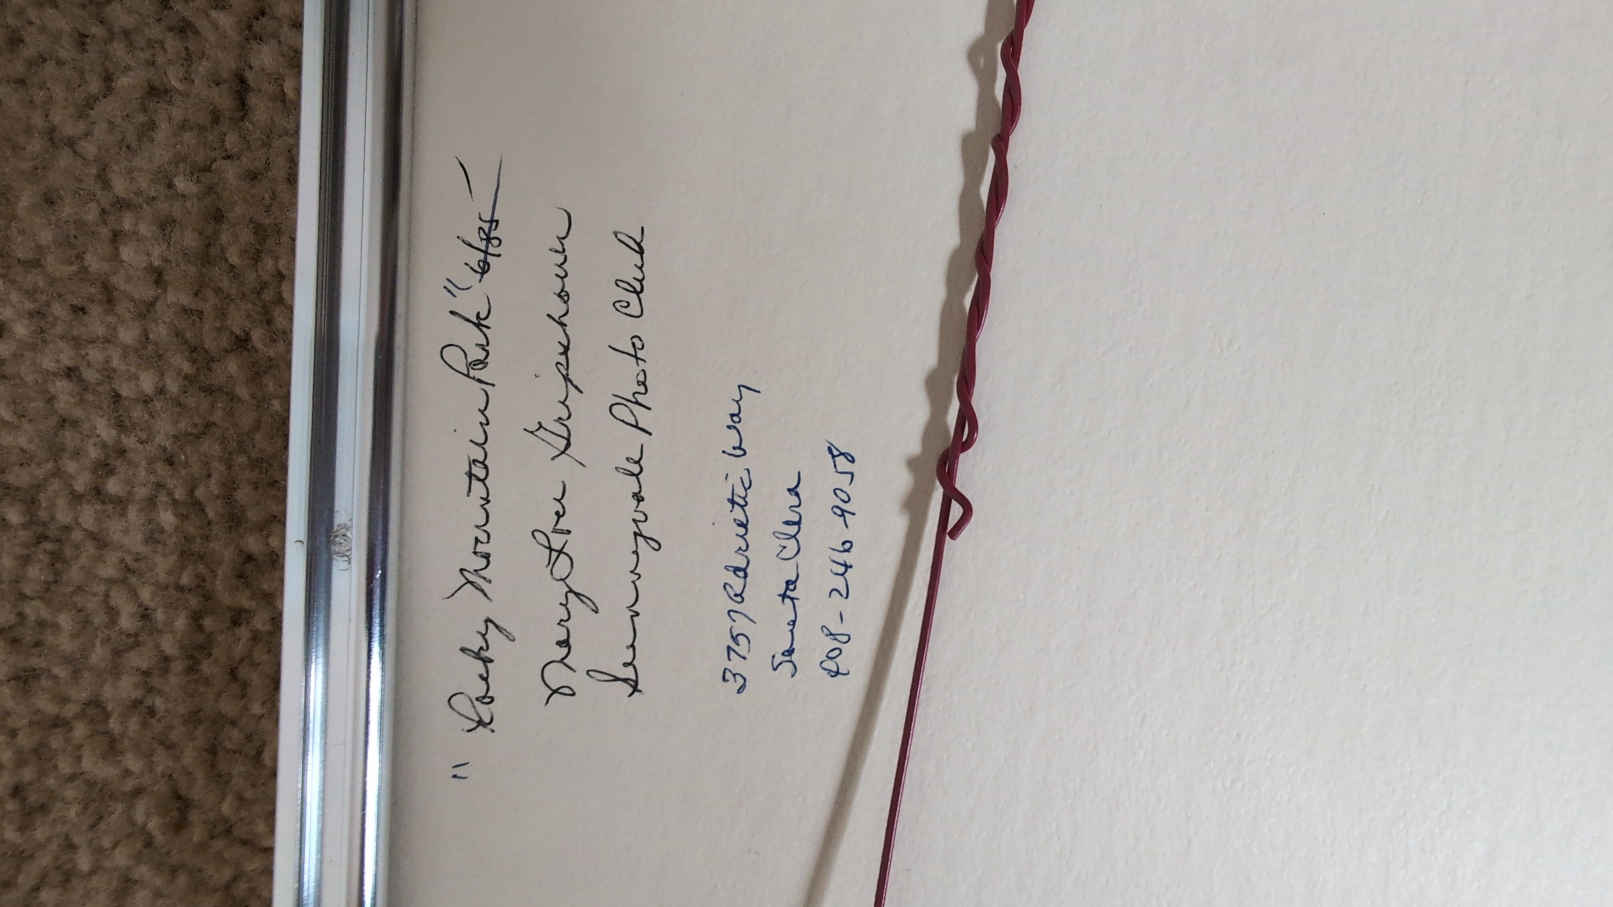 "Rocky Mountain Park" 6/85
Mary Lou Gripshover
Sunnyvale Photo Club
3757 Adriatic Way
Santa Clara
408-246-9058